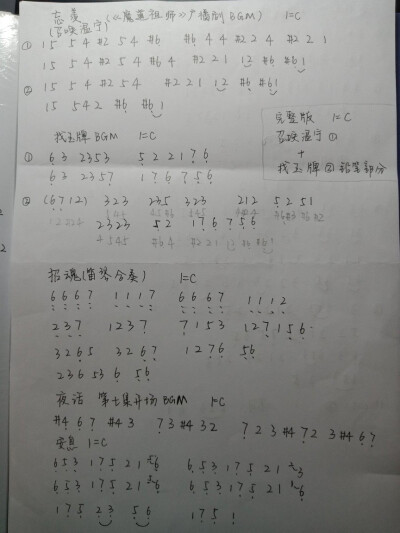 忘羡(《魔道祖师》广播剧BGM) 1=C
(召唤温宁)
① 15 5 4 #2 5 4 #6 #6 4 4 #2 2 4 #2 2 1
15 5 4 #2 5 4 #6 #6 4 #2 2 1 12 #6 #61
② 15 5 4 #2 5 4 #2 2 1 12 #6 #61
15 542 #6 #61
完整版 1=C
召唤温宁①
+
找玉牌②铅笔部分
找玉牌BGM 1=C
① 63 2353 5 2 2 1 7 6
63 2357 1 7 6 7 5 6
② (6712) 323 235 323 212 5 2 51
2323 52 1 7 6 7 5 6
招魂(笛琴合奏) 1=C
6667 1117 6667 1112
237 1237 7153 127156
3265 3267 1276 56
236 53 6 56
夜话 第七集开场BGM 1=C
#4 6 7 #4 3 7 3 #4 3 2 7 2 3 #4 7 2 3 #4 6 7
安息 1=C
653 175 21 653 175 21
653 175 21 653 175 21
175 23 56 175 1